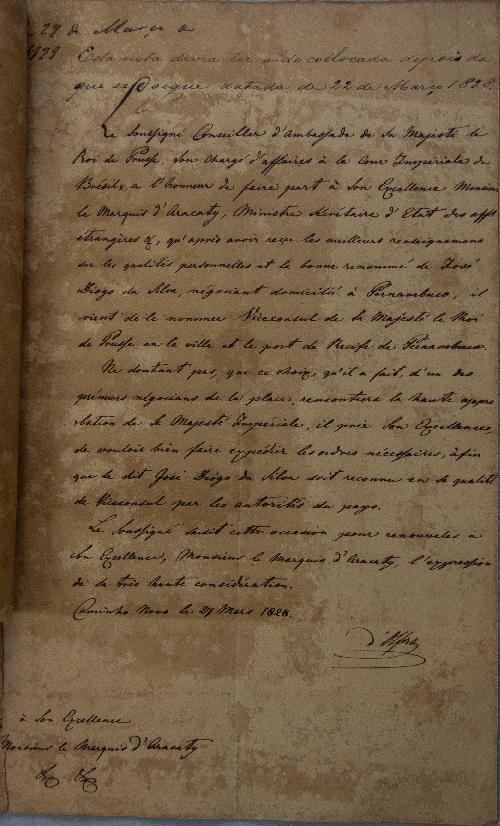 29 de Março de
1828
Esta nota devia ter sido collocada depois da
que se segue, datada de 22 de Março 1828.
Le Soussigné Conseiller d'Ambassade de Sa Majesté le
Roi de Prusse, Son chargé d'affaires à la Cour Impériale du
Brésil, a l'honneur de faire part à Son Excellence Monsieur
le Marquis d'Aracaty, Ministre Sécrétaire d'Etat des aff.
étrangères &, qu'après avoir reçu les meilleurs renseignemens
sur les qualités personnelles et la bonne renommé de José
Diogo da Silva, négociant domicilié à Pernambuco, il
vient de le nommer Viceconsul de Sa Majesté le Roi
de Prusse en la ville et le port de Recife de Pernambuco.
Ne doutant pas, que ce choix, qu'il a fait, d'un des
premiers négocians de la place, rencontrera la haute appro-
bation de Sa Majesté Impériale, il prie Son Excellence,
de vouloir bien faire expédier les ordres nécessaires, àfin
que le dit José Diogo da Silva soit reconnu en sa qualité
de Viceconsul par les autorités du pays.
Le Soussigné saisit cette occasion pour renouveler à
Son Excellence, Monsieur le Marquis d'Aracaty, l'expression
de sa très haute considération.
Caminho Novo le 29 Mars 1828.
à Son Excellence
Monsieur le Marquis d'Aracaty
&c &c